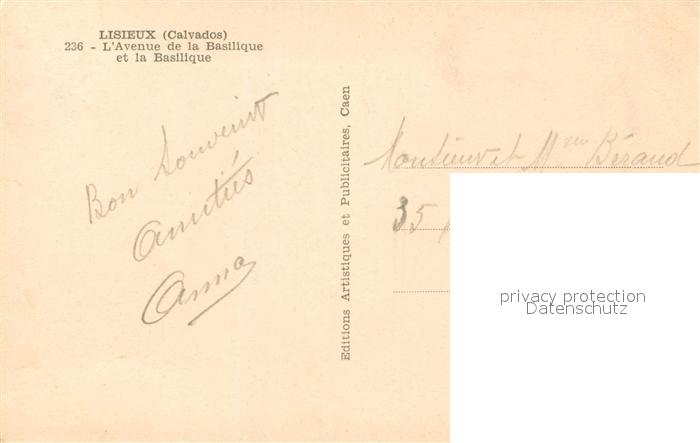 LISIEUX (Calvados)
236 - L'Avenue de la Basilique
et la Basilique
Bon Souvenir
Amitiés
Anna
Editions Artistiques et Publicitaires, Caen
Monsieur et Mme Béraud
35
privacy protection
Datenschutz